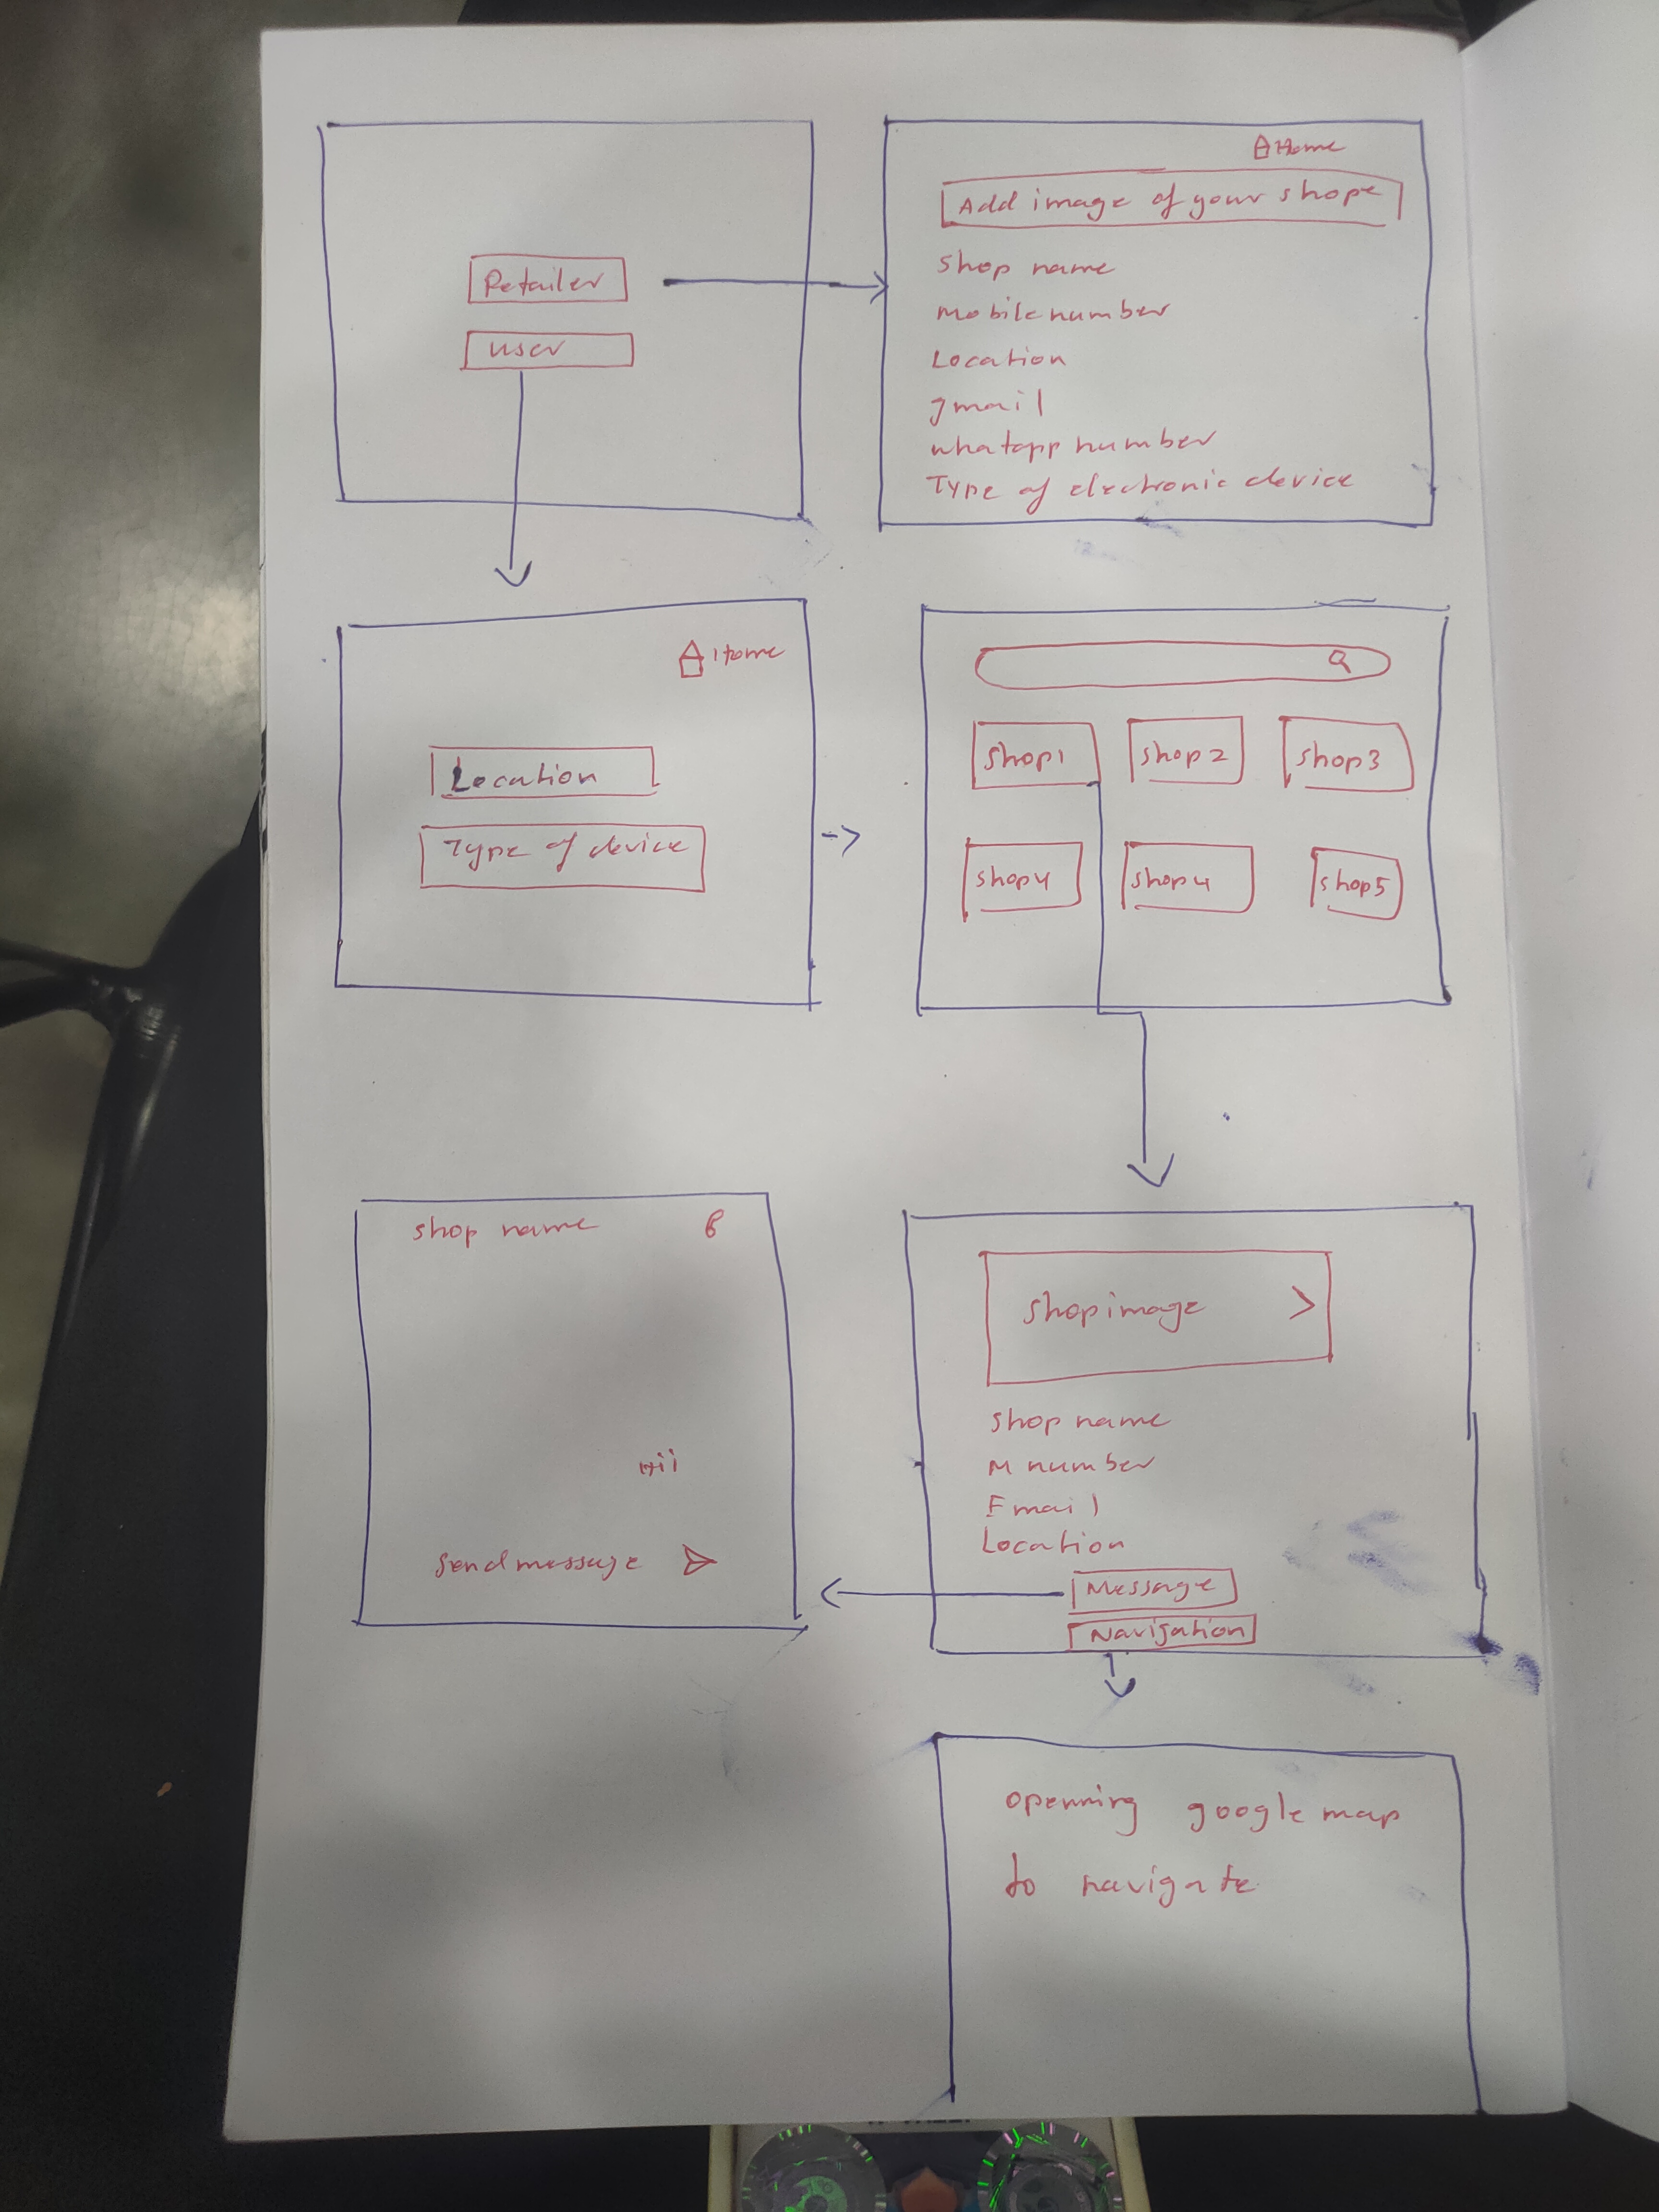 Retailer
user
Home
Add image of your shope
shop name
mobile number
Location
gmail
whatapp number
Type of electronic device
Home
Location
Type of device
shop1
shop2
shop3
shop4
shop4
shop5
shop name
Hii
Send message
shop image >
shop name
M number
Email
Location
Message
Navigation
openning google map
to navigate